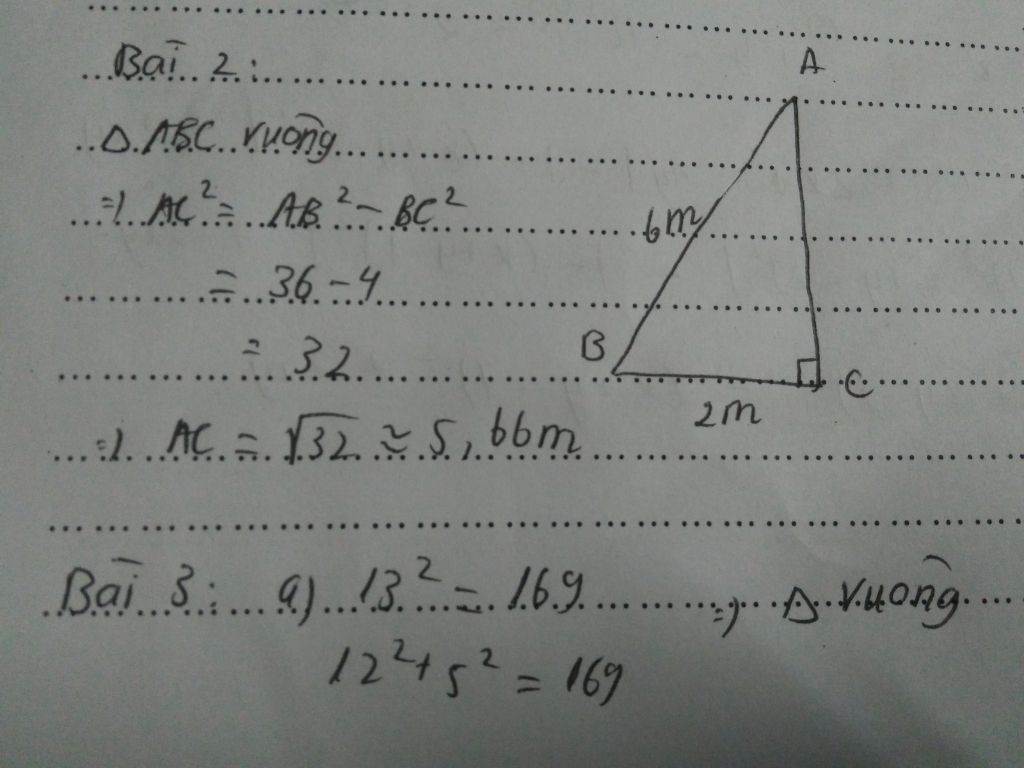 Bài 2:
Δ ABC vuông
=> AC² = AB² - BC²
= 36 - 4
= 32
=> AC = √32 ≈ 5,66m
A
6m
B
C
2m
Bài 3: a) 13² = 169 => Δ vuông
12² + 5² = 169